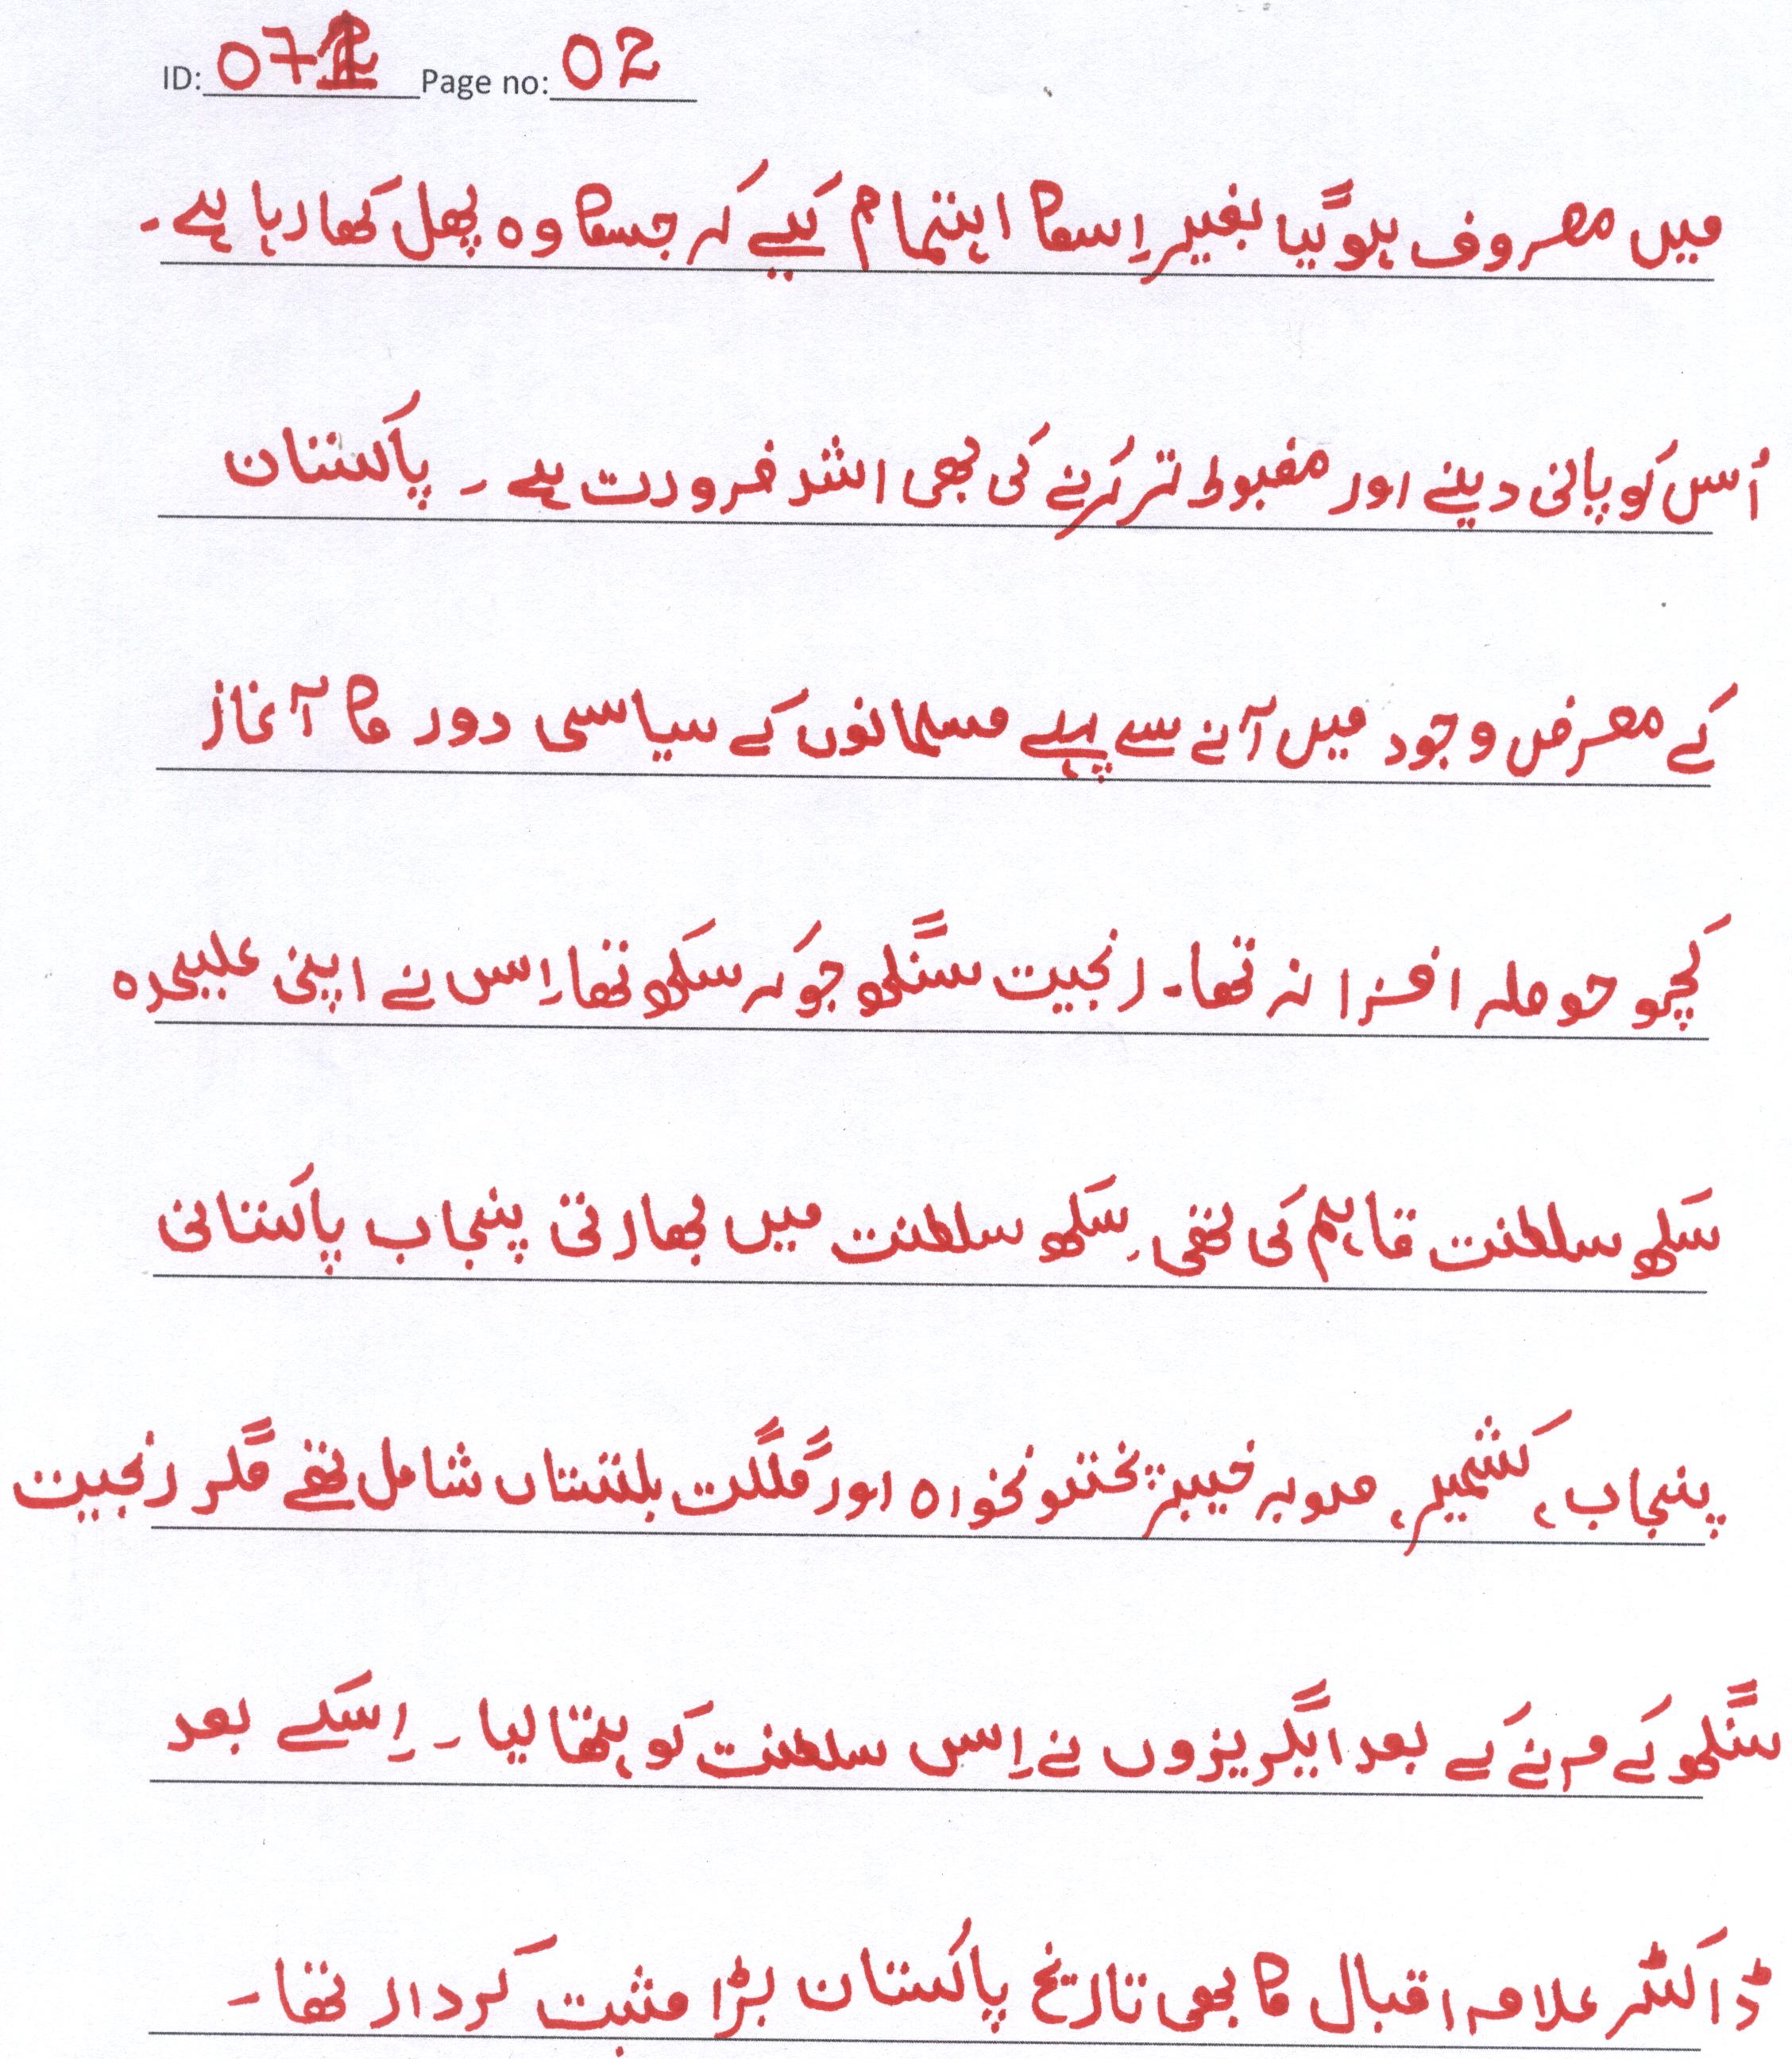 ID: 071 Page no: 02
میں مصروف ہوگیا بغیر اِسکا اہتمام کیے کہ جسکا وہ پھل کھا رہا ہے۔
اُس کو پانی دینے اور مضبوط تر کرنے کی بھی اشد ضرورت ہے۔ پاکستان
کے معرض وجود میں آنے سے پہلے مسلمانوں کے سیاسی دور کا آغاز
کچھ حوصلہ افزا نہ تھا۔ رنجیت سنگھ جو کہ سکھ تھا اِس نے اپنی علیحدہ
سکھ سلطنت قائم کی تھی۔ سکھ سلطنت میں بھارتی پنجاب پاکستانی
پنجاب، کشمیر، صوبہ خیبر پختونخواہ اور گلگت بلتستاں شامل تھے مگر رنجیت
سنگھ کے مرنے کے بعد انگریزوں نے اِس سلطنت کو ہتھا لیا۔ اِسکے بعد
ڈاکٹر علامہ اقبال کا بھی تاریخ پاکستان بڑا مثبت کردار تھا۔